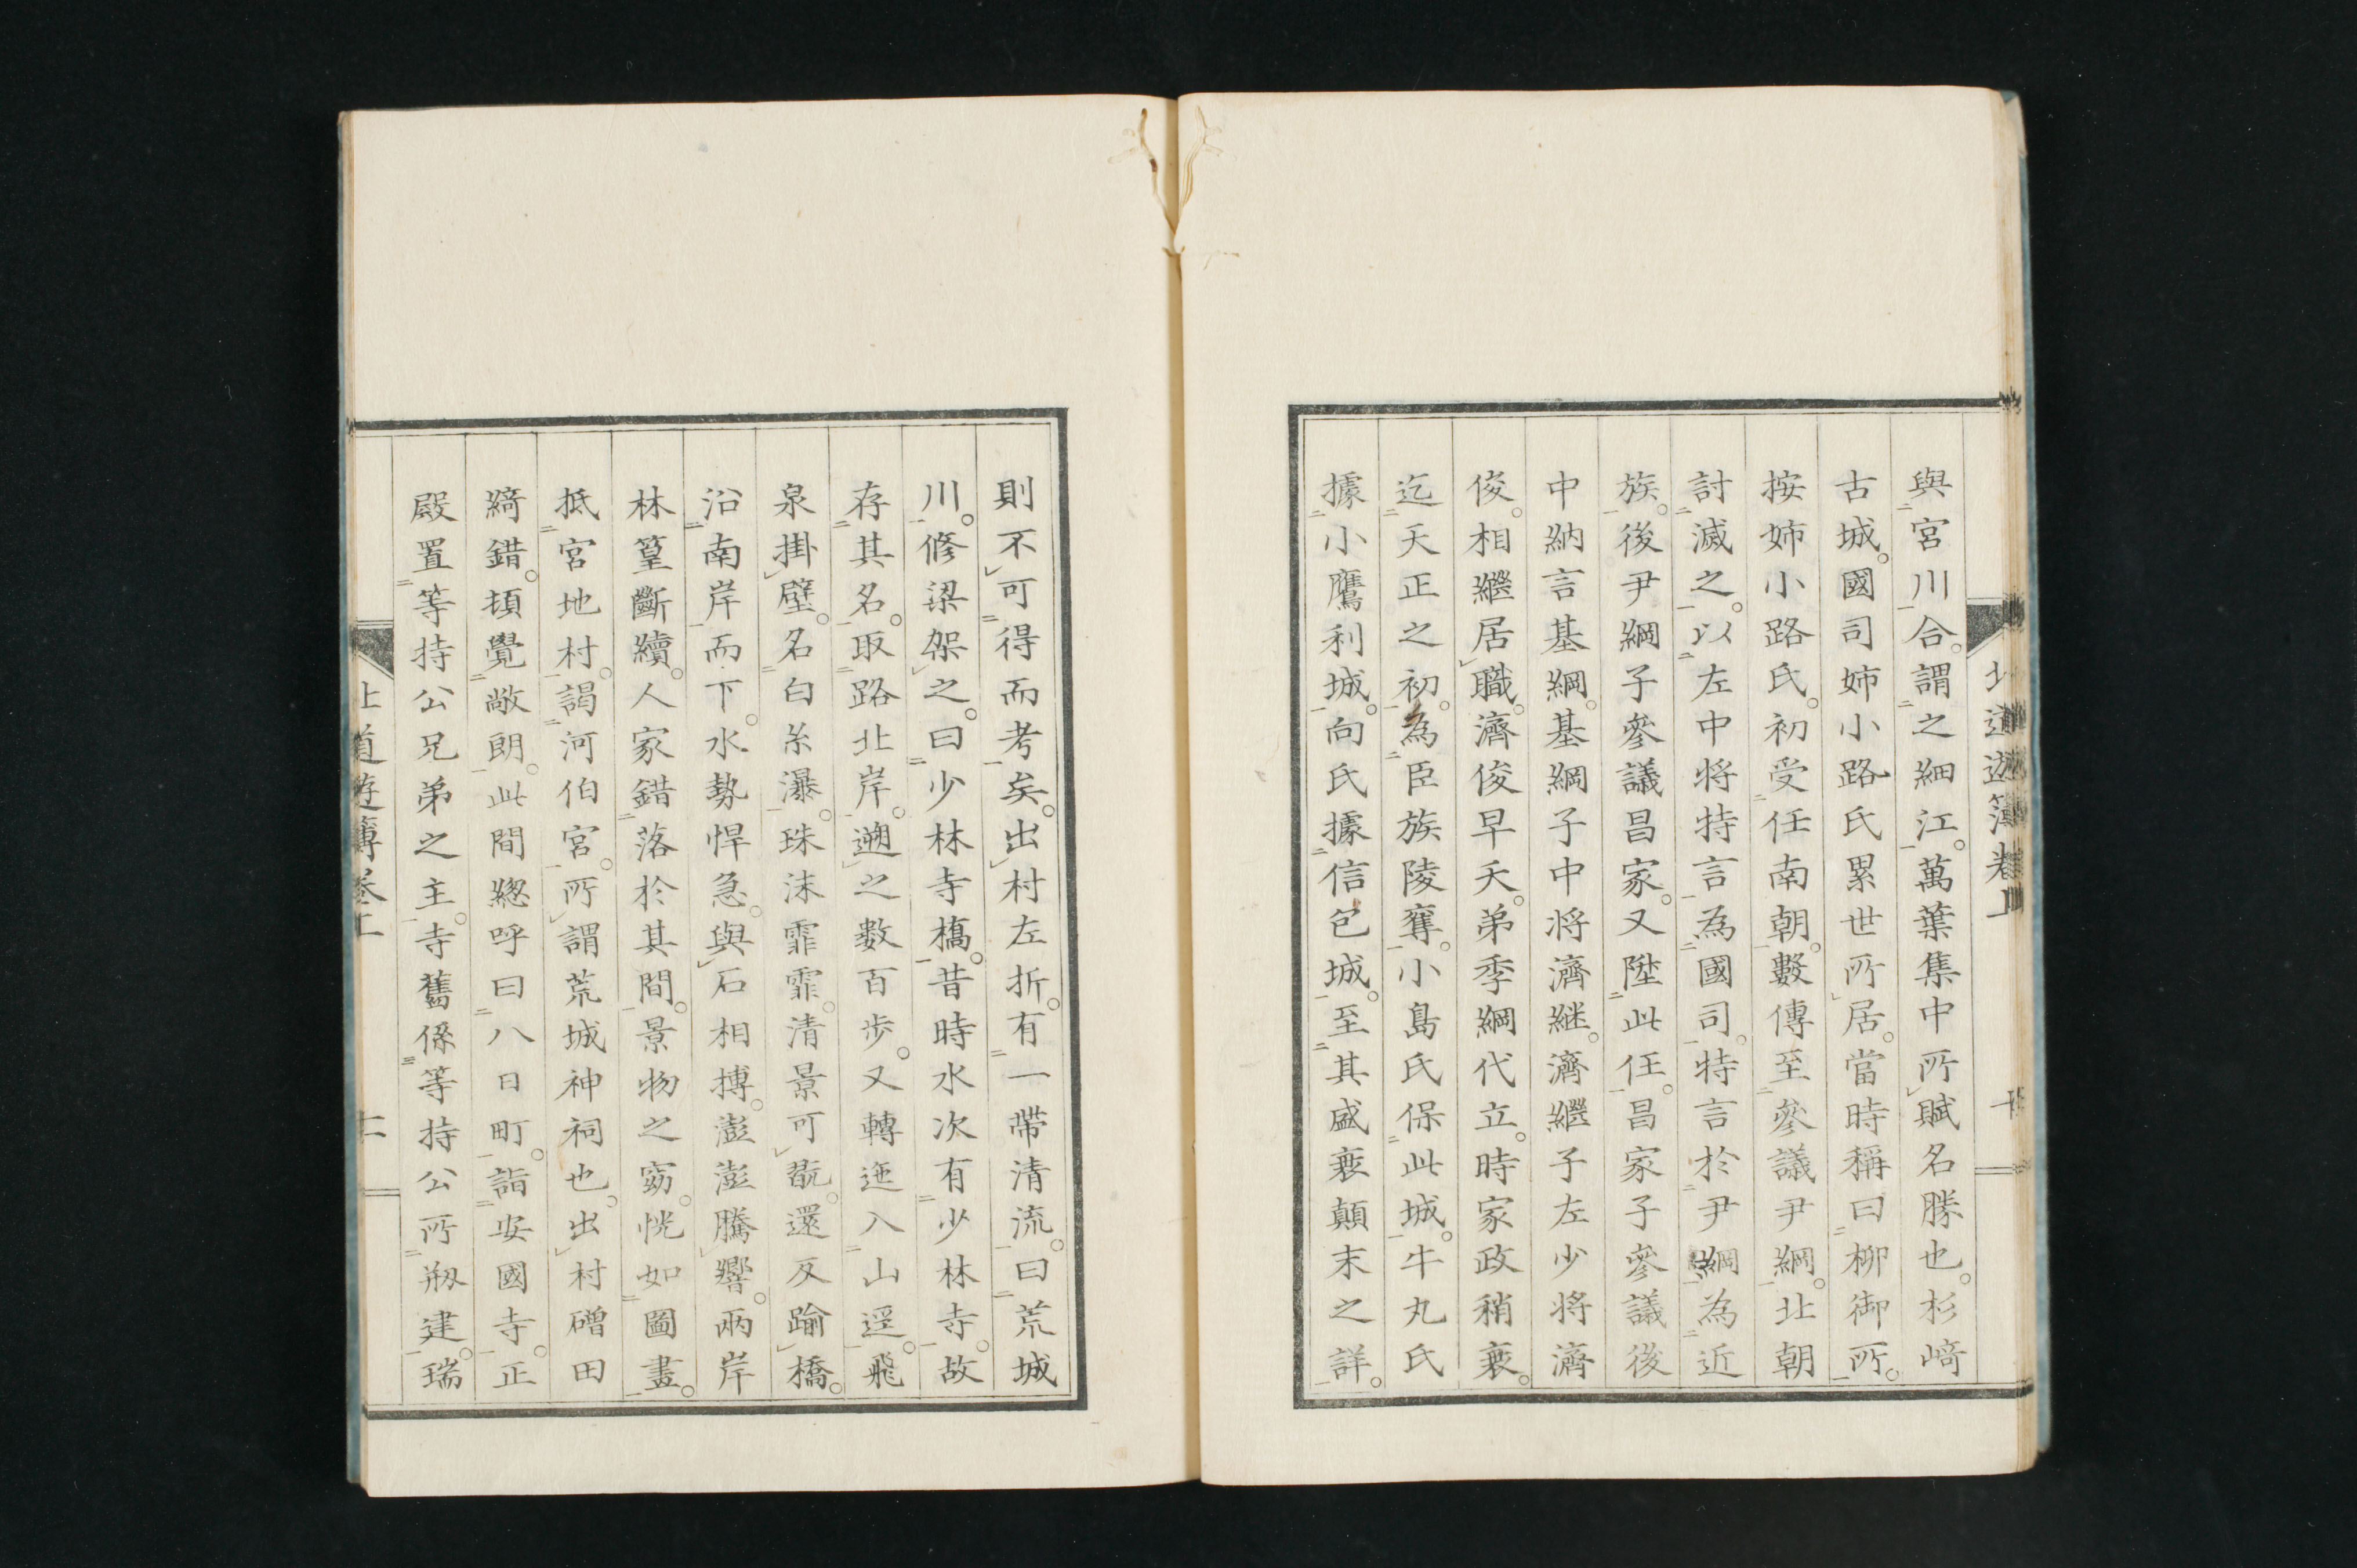 與宮川合。謂之細江。萬葉集中所賦名勝也。杉﨑
古城。國司姉小路氏累世所居。當時稱曰柳御所。
按姉小路氏。初受任南朝。數傳至參議尹綱。北朝
討滅之。以左中将特言為國司。特言於尹綱為近
族。後尹綱子參議昌家。又陞此任。昌家子參議後
中納言基綱。基綱子中将濟継。濟繼子左少将濟
俊。相繼居職。濟俊早夭。弟季綱代立。時家政稍衰。
迄天正之初。為臣族陵奪。小島氏保此城。牛丸氏
據小鷹利城。向氏據信包城。至其盛衰顛末之詳。
則不可得而考矣。出村左折。有一帶清流。曰荒城
川。修梁架之。曰少林寺橋。昔時水次有少林寺。故
存其名。取路北岸。遡之數百歩。又轉迤入山逕。飛
泉掛壁。名白糸瀑。珠沫霏霏。清景可翫。還反踰橋。
沿南岸而下。水勢悍急。與石相搏。澎澎騰響。兩岸
林篁斷續。人家錯落於其間。景物之窈。恍如圖畫。
抵宮地村。謁河伯宮。所謂荒城神祠也。出村磳田
綺錯。頓覺敞朗。此間緫呼曰八日町。詣安國寺。正
殿置等持公兄弟之主。寺舊係等持公所剏建。瑞
北道遊簿卷上
十
北道遊簿卷上
十一